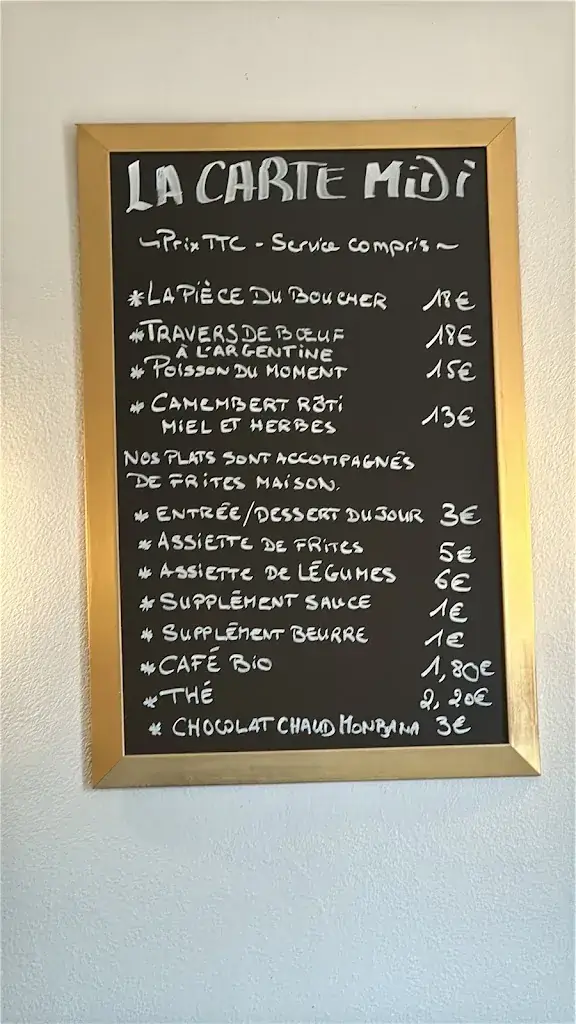 LA CARTE MIDI
~Prix TTC - Service compris~
* LA PIÈCE DU BOUCHER 18€
* TRAVERS DE BŒUF 18€
À L'ARGENTINE
* POISSON DU MOMENT 15€
* CAMEMBERT RÔTI
MIEL ET HERBES 13€
NOS PLATS SONT ACCOMPAGNÉS
DE FRITES MAISON.
* ENTRÉE/DESSERT DU JOUR 3€
* ASSIETTE DE FRITES 5€
* ASSIETTE DE LÉGUMES 6€
* SUPPLÉMENT SAUCE 1€
* SUPPLÉMENT BEURRE 1€
* CAFÉ BIO 1,80€
* THÉ 2,20€
* CHOCOLAT CHAUD MONBANA 3€